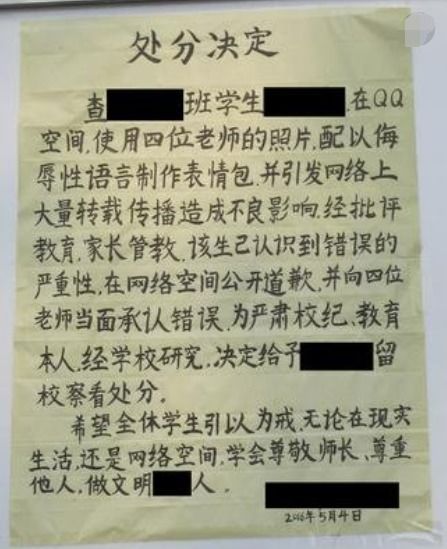 处分决定
查 班学生 在QQ
空间,使用四位老师的照片,配以侮
辱性语言制作表情包.并引发网络上
大量转载传播造成不良影响.经批评
教育,家长管教,该生已认识到错误的
严重性,在网络空间公开道歉,并向四位
老师当面承认错误.为严肃校纪、教育
本人,经学校研究,决定给予 留
校察看处分。
希望全体学生引以为戒,无论在现实
生活,还是网络空间,学会尊敬师长、尊重
他人,做文明 人。
2016年5月4日